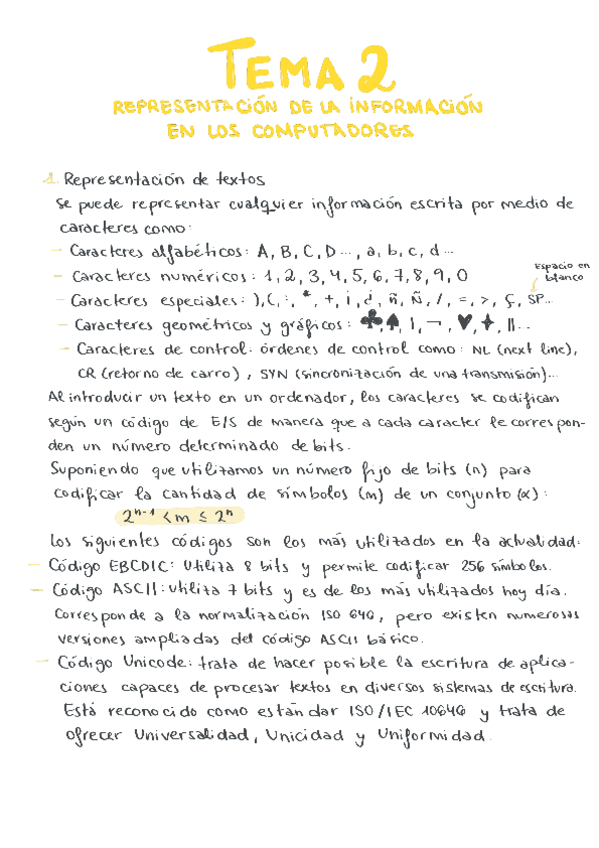 TEMA 2
REPRESENTACIÓN DE LA INFORMACIÓN
EN LOS COMPUTADORES
1. Representación de textos
Se puede representar cualquier información escrita por medio de
caracteres como:
- Caracteres alfabéticos: A, B, C, D..., a, b, c, d...
- Caracteres numéricos: 1, 2, 3, 4, 5, 6, 7, 8, 9, 0
Espacio en
blanco
- Caracteres especiales: ), (, :, *, +, ¡, ¿, ñ, Ñ, /, =, >, Ç, SP...
- Caracteres geométricos y gráficos: ♣, ♠, |, ¬, ♥, ♦, ||...
- Caracteres de control: órdenes de control como: NL (next line),
CR (retorno de carro), SYN (sincronización de una transmisión)...
Al introducir un texto en un ordenador, los caracteres se codifican
según un código de E/S de manera que a cada caracter le correspon-
den un número determinado de bits.
Suponiendo que utilizamos un número fijo de bits (n) para
codificar la cantidad de símbolos (m) de un conjunto (α):
2ⁿ⁻¹ < m ≤ 2ⁿ
Los siguientes códigos son los más utilizados en la actualidad:
- Código EBCDIC: Utiliza 8 bits y permite codificar 256 símbolos.
- Código ASCII: utiliza 7 bits y es de los más utilizados hoy día.
Corresponde a la normalización ISO 646, pero existen numerosas
versiones ampliadas del código ASCII básico.
- Código Unicode: trata de hacer posible la escritura de aplica-
ciones capaces de procesar textos en diversos sistemas de escritura.
Está reconocido como estándar ISO/IEC 10646 y trata de
ofrecer Universalidad, Unicidad y Uniformidad.